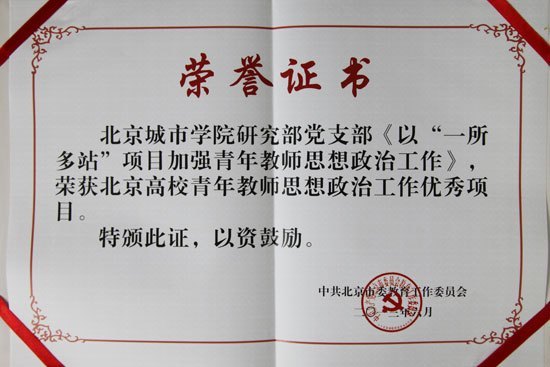 荣誉证书
北京城市学院研究部党支部《以“一所
多站”项目加强青年教师思想政治工作》，
荣获北京高校青年教师思想政治工作优秀项
目。
特颁此证，以资鼓励。
中共北京市委教育工作委员会